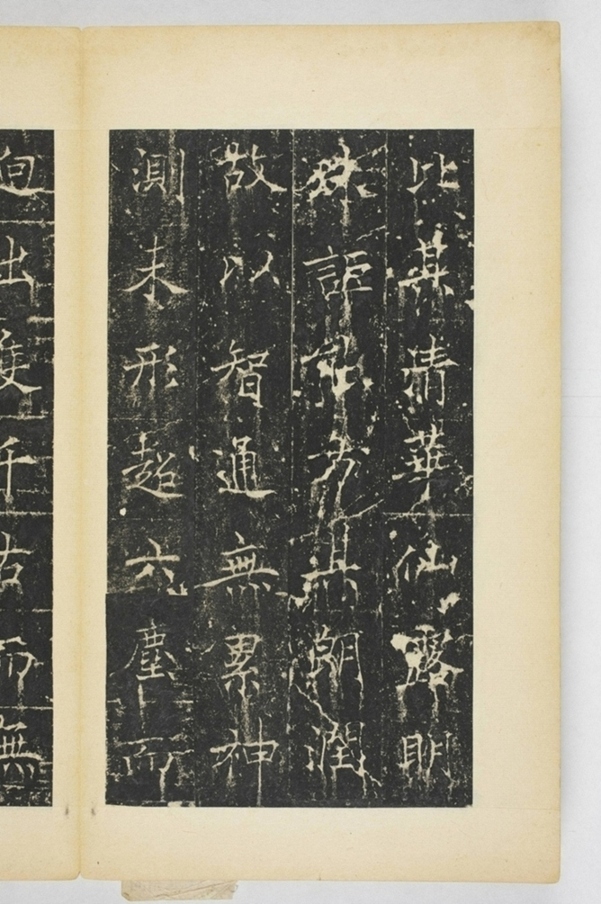 比其清華仙露明
珠詎能方其朗潤
故以智通無累神
測未形超六塵而
迥出隻千古而無